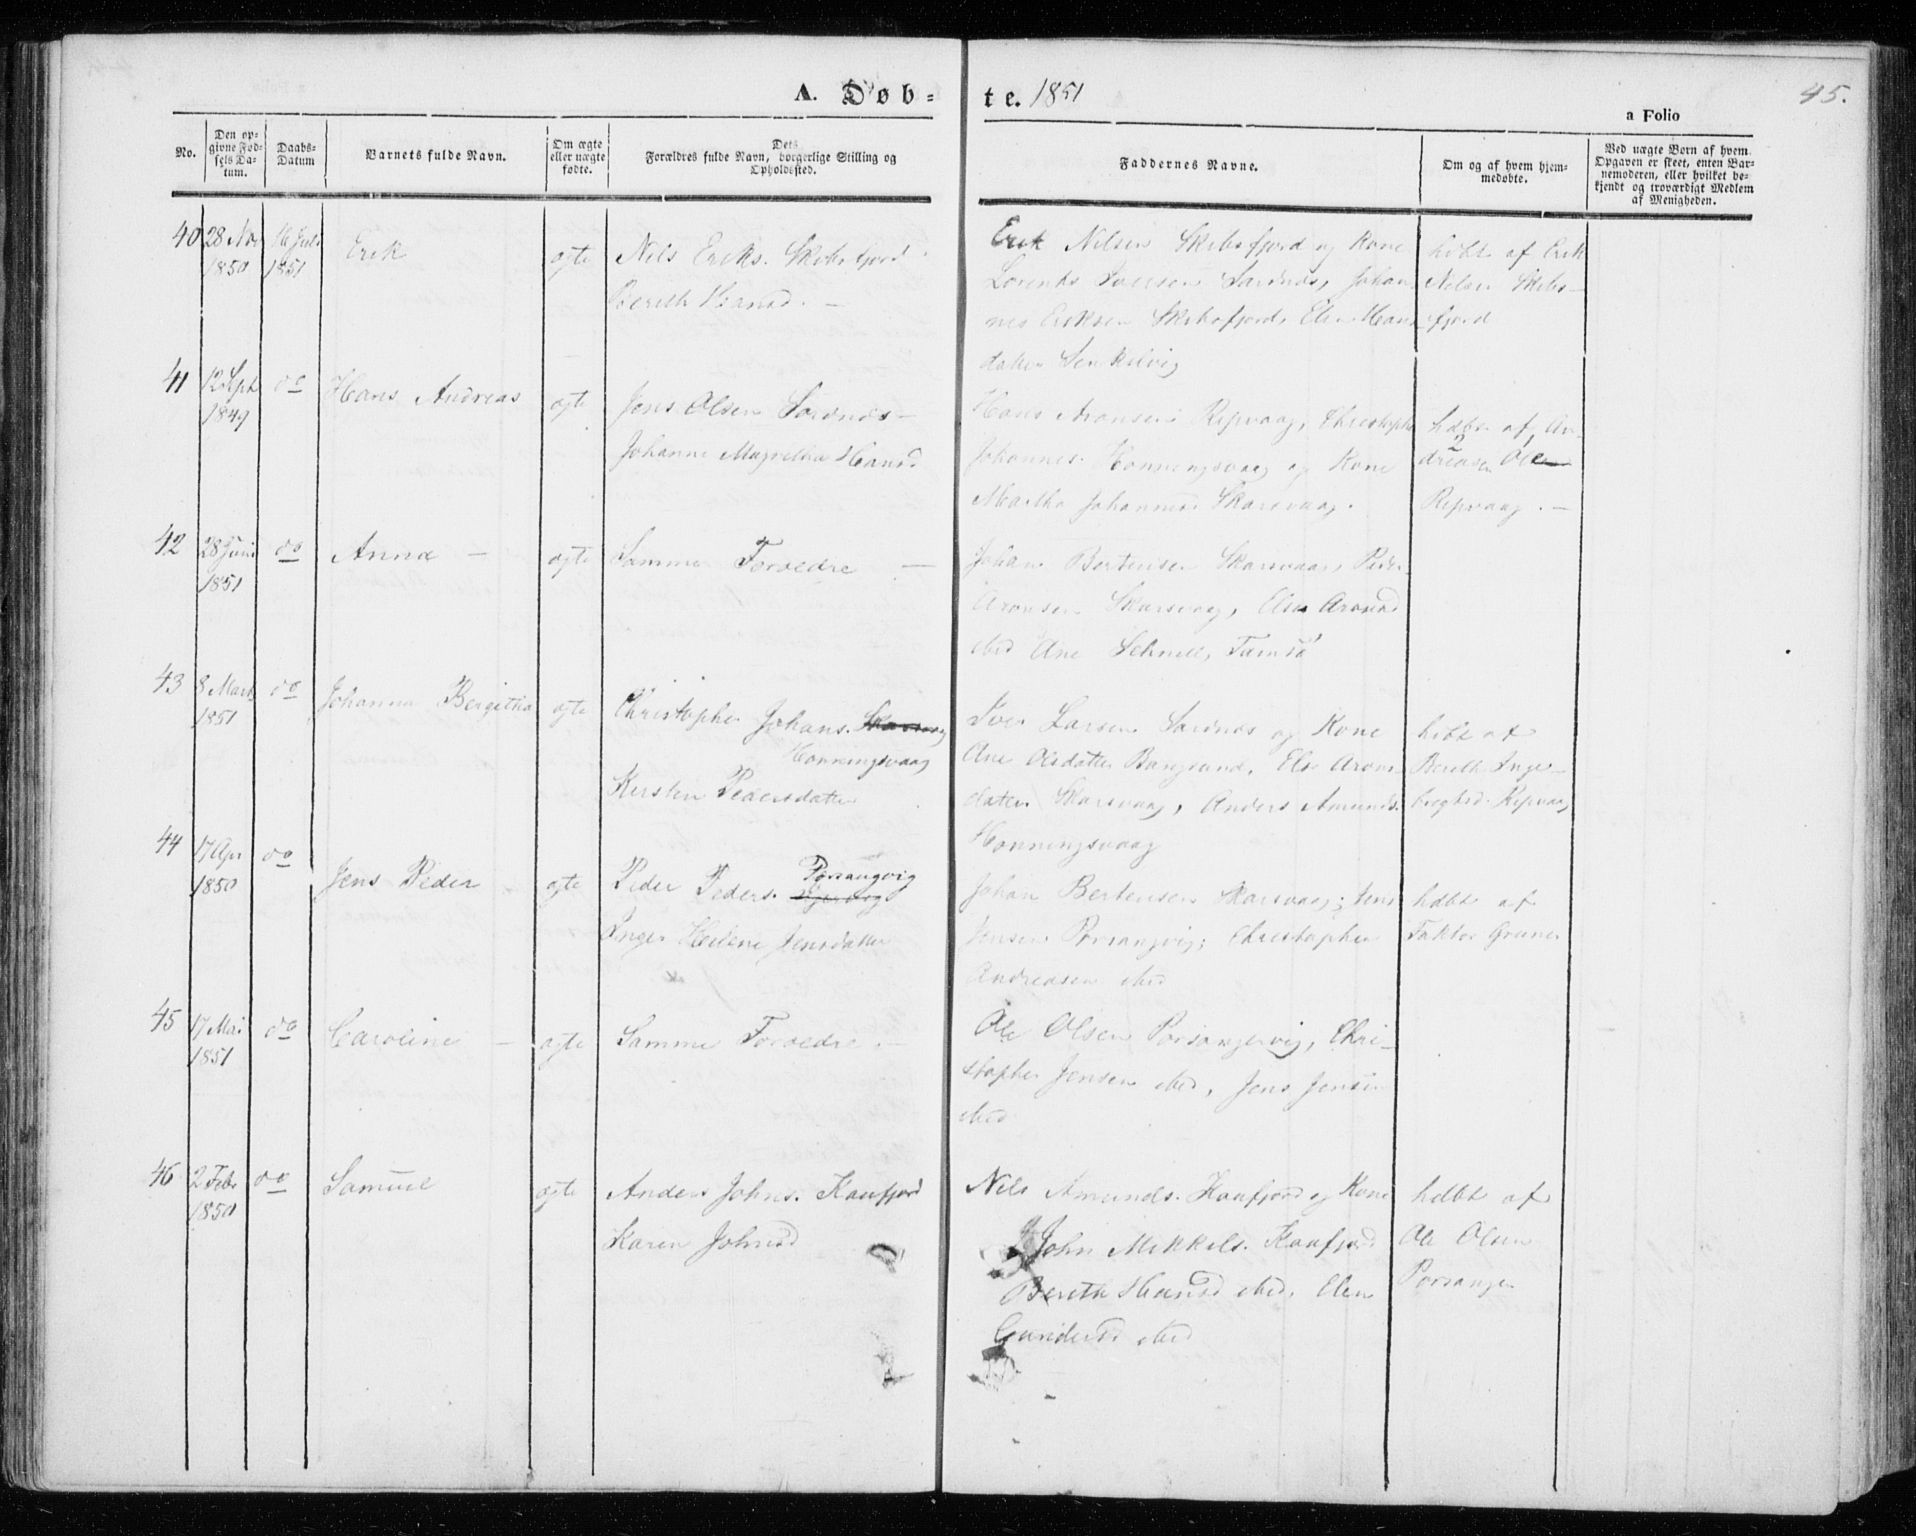 A. Døb=
te. 1851
45.
a Folio
No.
Den op=
givne Fød=
sels Da=
tum.
Daabs=
Datum
Barnets fulde Navn.
Om ægte
eller uægte
fødte.
Dets
Forældres fulde Navn, borgerlige Stilling og
Opholdssted.
Faddernes Navne.
Om og af hvem hjem=
medøbte.
Ved uægte Børn af hvem
Opgaven er skeet, enten Bar=
nemoderen, eller hvilket be=
kjendt og troværdigt Medlem
af Menigheden.
40
28 Nov
1850
16 Juli
1851
Erik
ægte
Nils Eriks. Skibsfjord
Berith Hansd. —
Erik Nilsen Skibsfjord og Kone
Sardnæs, Johan
nes Eriksen Skibsfjord, Elen Hans
datter
hdbt af Erik
Nilsen Skibs-
fjord
41
12 Sept
1849
do
Hans Andreas
ægte
Jens Olsen Sardnæs
Johanne Magretha Hansd
Hans Aronsen Repvaag, Christoph
Johannes. Honningsvaag og Kone
Martha Johannesd Skarsvaag.
hdbt af An-
dreasen Ole
Repvaag. —
42
28 Juni
1851
do
Anna —
ægte
Samme Forældre —
Johan Bertensen Skarsvaag, Peder
Aronsen Skarsvaag, Else Aronsd
ibid Ane Schnell, Tamsø
43
8 Marts
1851
do
Johanna Bergitha
ægte
Christopher Johans. Skarsvaag
Honningsvaag
Kersten Pedersdatter
Iver Larsen Sardnæs og Kone
Ane Olsdatter, Else Arons-
datter Skarsvaag, Anders Amunds.
Honningsvaag
hdbt af
Bereth Inge-
brigtsd. Repvaag
44
17 Apr
1850
do
Jens Peder
ægte
Porsangvig
Peder Peders.
Inger Helene Jensdatter
Johan Bertensen Skarsvaag; Jens
Jensen Porsangvig; Christopher
Andreasen ibid
hdbt af
Faktor Gruner
45
17 Mai
1851
do
Caroline —
ægte
Samme Forældre. —
Ole Olsen Porsangervig, Chri-
stopher Jensen ibid, Jens Jensen
ibid
46
2 Febr
1850
do
Samuel
ægte
Anders Johns. Kaafjord
Karen Johnsd
Nils Amunds. Kaafjord og Kone
John Mikkels. Kaafjord
Bereth Hansd ibid, Elen
Gundersd ibid
hdbt af
Ole Olsen
Porsanger